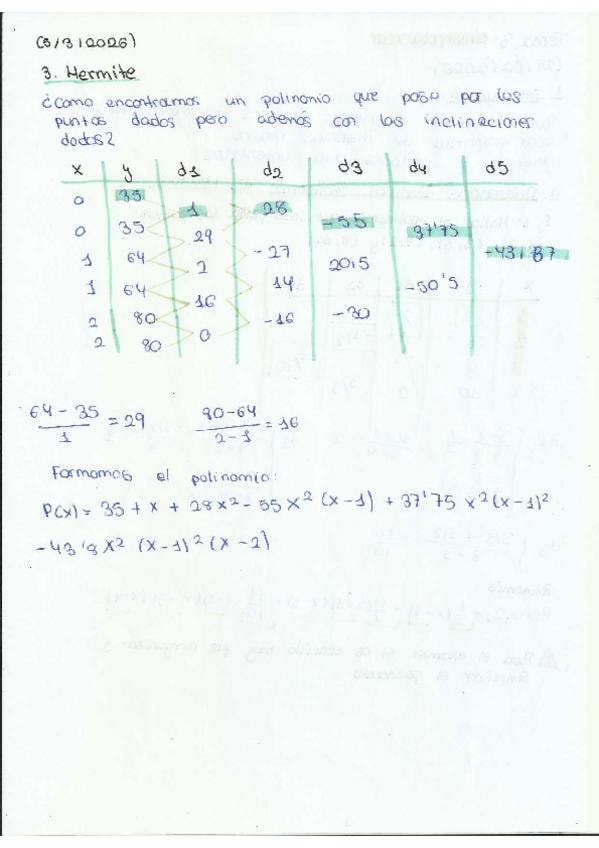 (5/3/2026)
3. Hermite
¿Como encontramos un polinomio que pase por los
puntos dados pero además con las inclinaciones
dadas?
x y d1 d2 d3 d4 d5
0 35
1 28
-55
0 35 37'75
29 -27 -43,87
1 64
2 20,5
1 64 14 -50'5
16
2 80 -16 -30
2 80 0
64-35/1 = 29 80-64/2-1 = 16
Formamos el polinomio:
P(x) = 35 + x + 28x² - 55x² (x-1) + 37'75 x² (x-1)²
-43'8x² (x-1)² (x-2)